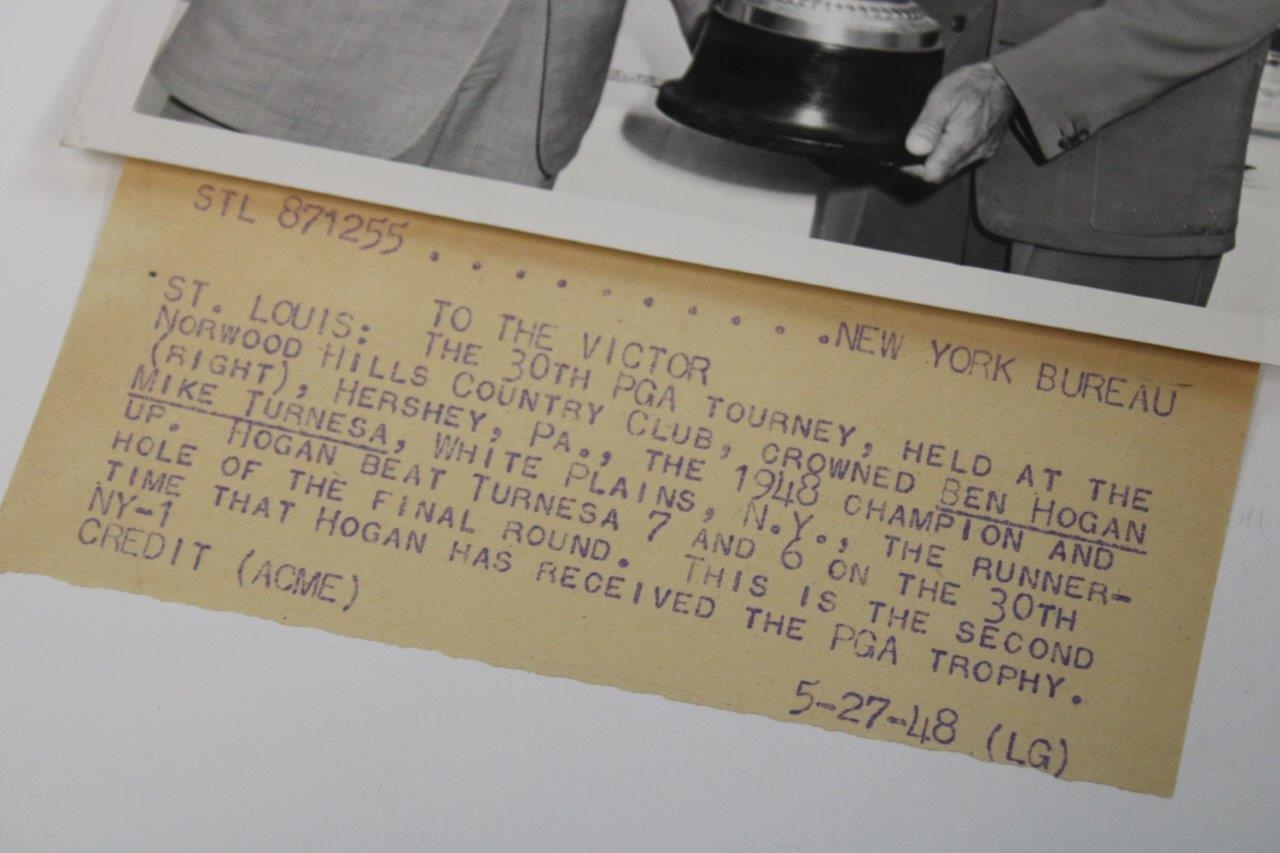 STL 871255 . . . . . . . . . .NEW YORK BUREAU
TO THE VICTOR
ST. LOUIS: THE 30TH PGA TOURNEY, HELD AT THE
NORWOOD HILLS COUNTRY CLUB, CROWNED BEN HOGAN
(RIGHT), HERSHEY, PA., THE 1948 CHAMPION AND
MIKE TURNESA, WHITE PLAINS, N.Y., THE RUNNER-
UP. HOGAN BEAT TURNESA 7 AND 6 ON THE 30TH
HOLE OF THE FINAL ROUND. THIS IS THE SECOND
TIME THAT HOGAN HAS RECEIVED THE PGA TROPHY.
NY-1
CREDIT (ACME) 5-27-48 (LG)